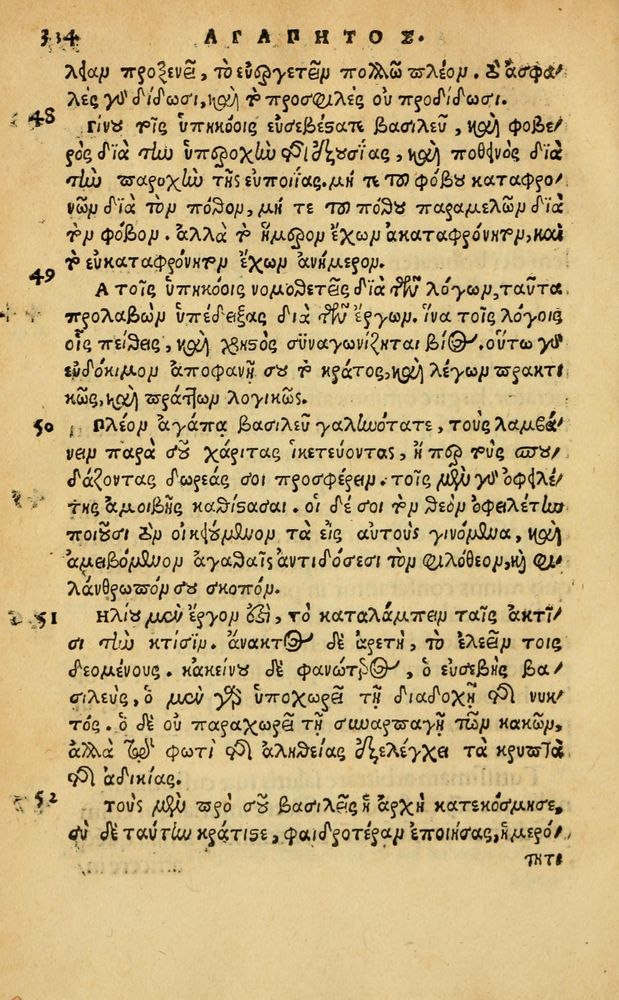 334 ΑΓΑΠΗΤΟΣ.
λείαν προξενεῖ, τὸ εὐεργετεῖν πολλῷ πλέον. ὃ ἀσφα/
λὲς γὰρ δίδωσι, καὶ τὸ προσφιλὲς οὐ προδίδωσι.
48 Γίνου τοῖς ὑπηκόοις εὐσεβέστατε βασιλεῦ, καὶ φοβε/
ρὸς διὰ τὴν ὑπεροχὴν τῆς ἐξουσίας, καὶ ποθεινὸς διὰ
τὴν παροχὴν τῆς εὐποιίας. μή τε τοῦ φόβου καταφρο/
νῶν διὰ τὸν πόθον, μή τε τοῦ πόθου παραμελῶν διὰ
τὸν φόβον. ἀλλὰ τὸ ἥμερον ἔχων ἀκαταφρόνητον, καὶ
τὸ εὐκαταφρόνητον ἔχων ἀνήμερον.
49 Α τοῖς ὑπηκόοις νομοθετεῖς διὰ τῶν λόγων, ταῦτα
προλαβὼν ὑπέδειξας διὰ τῶν ἔργων. ἵνα τοῖς λόγοις
οἷς πείθεις, καὶ χρηστὸς συναγωνίζηται βίος. οὕτω γὰρ
εὐδόκιμον ἀποφανῇ σου τὸ κράτος, καὶ λέγων πρακτι
κῶς, καὶ πράττων λογικῶς.
50 Πλέον ἀγάπα βασιλεῦ γαληνότατε, τοὺς λαμβά/
νειν παρὰ σοῦ χάριτας ἱκετεύοντας, ἢ περ τοὺς σπου/
δάζοντας δωρεάς σοι προσφέρειν. τοῖς μὲν γὰρ ὀφειλέ/
της ἀμοιβῆς καθίστασαι. οἱ δέ σοι τὸν θεὸν ὀφειλέτην
ποιοῦσι τὸν οἰκειούμενον τὰ εἰς αὐτοὺς γινόμενα, καὶ
ἀμειβόμενον ἀγαθαῖς ἀντιδόσεσι τὸν φιλόθεον, καὶ φι/
λάνθρωπόν σου σκοπόν.
51 Ηλίου μὲν ἔργον ἐστὶ, τὸ καταλάμπειν ταῖς ἀκτῖ/
σι τὴν κτίσιν. ἄνακτος δὲ ἀρετὴ, τὸ ἐλεεῖν τοὺς
δεομένους. κἀκείνου δὲ φανώτερος, ὁ εὐσεβὴς βα/
σιλεὺς, ὁ μὲν γὰρ ὑποχωρεῖ τῇ διαδοχῇ τῆς νυκ/
τός. ὁ δὲ οὐ παραχωρεῖ τῇ συναρπαγῇ τῶν κακῶν,
ἀλλὰ τῷ φωτὶ τῆς ἀληθείας ἐξελέγχει τὰ κρυπτὰ
τῆς ἀδικίας.
52 Τοὺς μὲν πρὸ σοῦ βασιλεῖς ἡ ἀρχὴ κατεκόσμησε,
σὺ δὲ ταύτην κράτιστε, φαιδροτέραν ἐποίησας, ἡμερό/
τητι